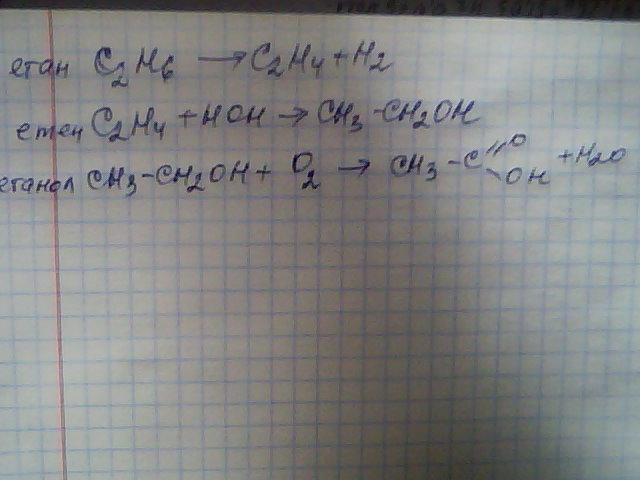 етан C₂H₆ → C₂H₄ + H₂
етен C₂H₄ + HOH → CH₃ - CH₂OH
етанол CH₃ - CH₂OH + O₂ → CH₃ - C =O - OH + H₂O